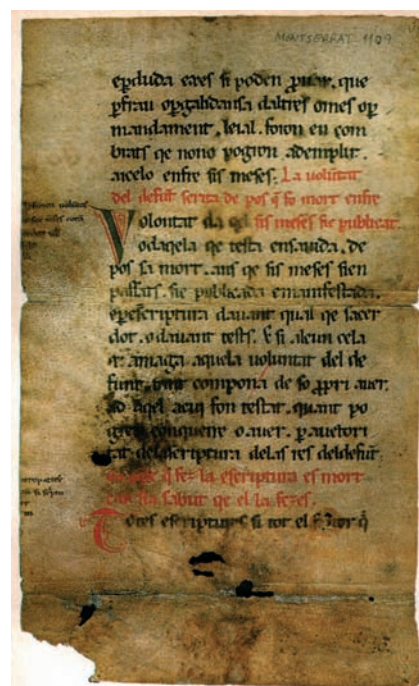 MONTSERRAT 1109
eꝑduda eares si poden ꝓuar. que
ꝑfrau oꝑgalidansa daltres omes oꝑ
mandament. leial. foron en com
brats qe nono pogron ademplir.
aicelo enfre sis meses. La uolūtat
del defūt scrita de pos q̄ fo mort enfre
Volontat sis meses sie publicat.
odaqela qe testa ensauida. de
pos sa mort. ans qe sis meses sien
passats. sie publicada emanifestada.
eꝑescriptura dauant qual qe sacer
dot. odauant tests. E si alcun cela
amaga aquela uoluntat del de
funt. tant compona de so ꝓpri auer.
ad aqel acui fon testat. quant po
gren conquerre o auer. ꝑ auctori
tat del escriptura delas res del defūt.
q̄ fez la escriptura es mort
con sia sabut qe el la fezes.
Totes escriptures si tot el q̄